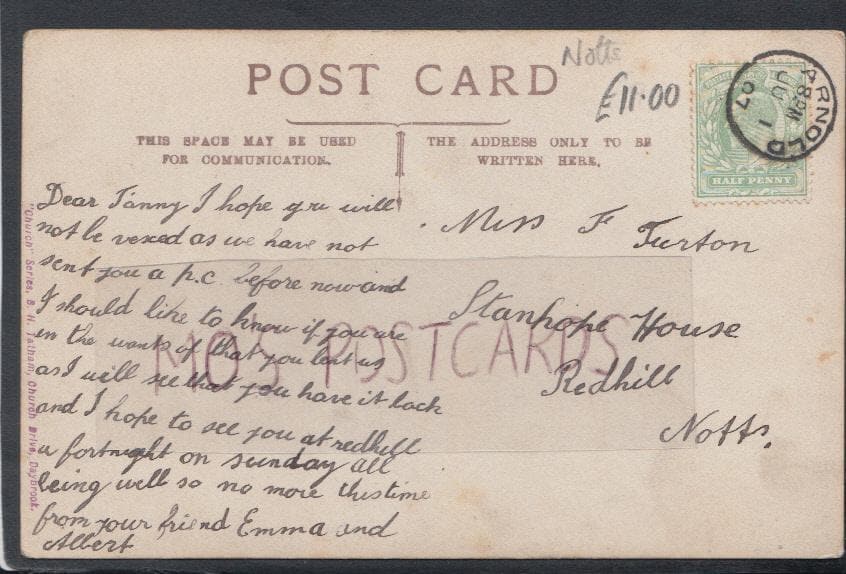 POST CARD
Notts
£11.00
THIS SPACE MAY BE USED
FOR COMMUNICATION.
THE ADDRESS ONLY TO BE
WRITTEN HERE.
HALF PENNY
ARNOLD
8 PM
JU 1
07
Dear Fanny I hope you will
not be vexed as we have not
sent you a p.c. before now and
I should like to know if you are
in the wants of that you lent us
as I will see that you have it back
and I hope to see you at redhill
a fortnight on sunday all
being well so no more this time
from your friend Emma and
Albert
Miss F Turton
Stanhope House
Redhill
Notts.
MO'S POSTCARDS
"Church" Series, B. H. Tatham, Church Drive, Daybrook.